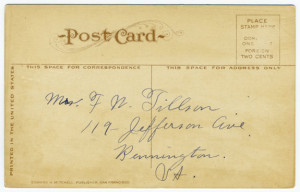 POST CARD
PLACE
STAMP
FOREIGN
TWO CENTS
THIS SPACE FOR CORRESPONDENCE
THIS SPACE FOR ADDRESS ONLY
PRINTED IN THE UNITED STATES
Mrs. F. N. Tillson
119 Jefferson Ave.
Bennington.
Vt.